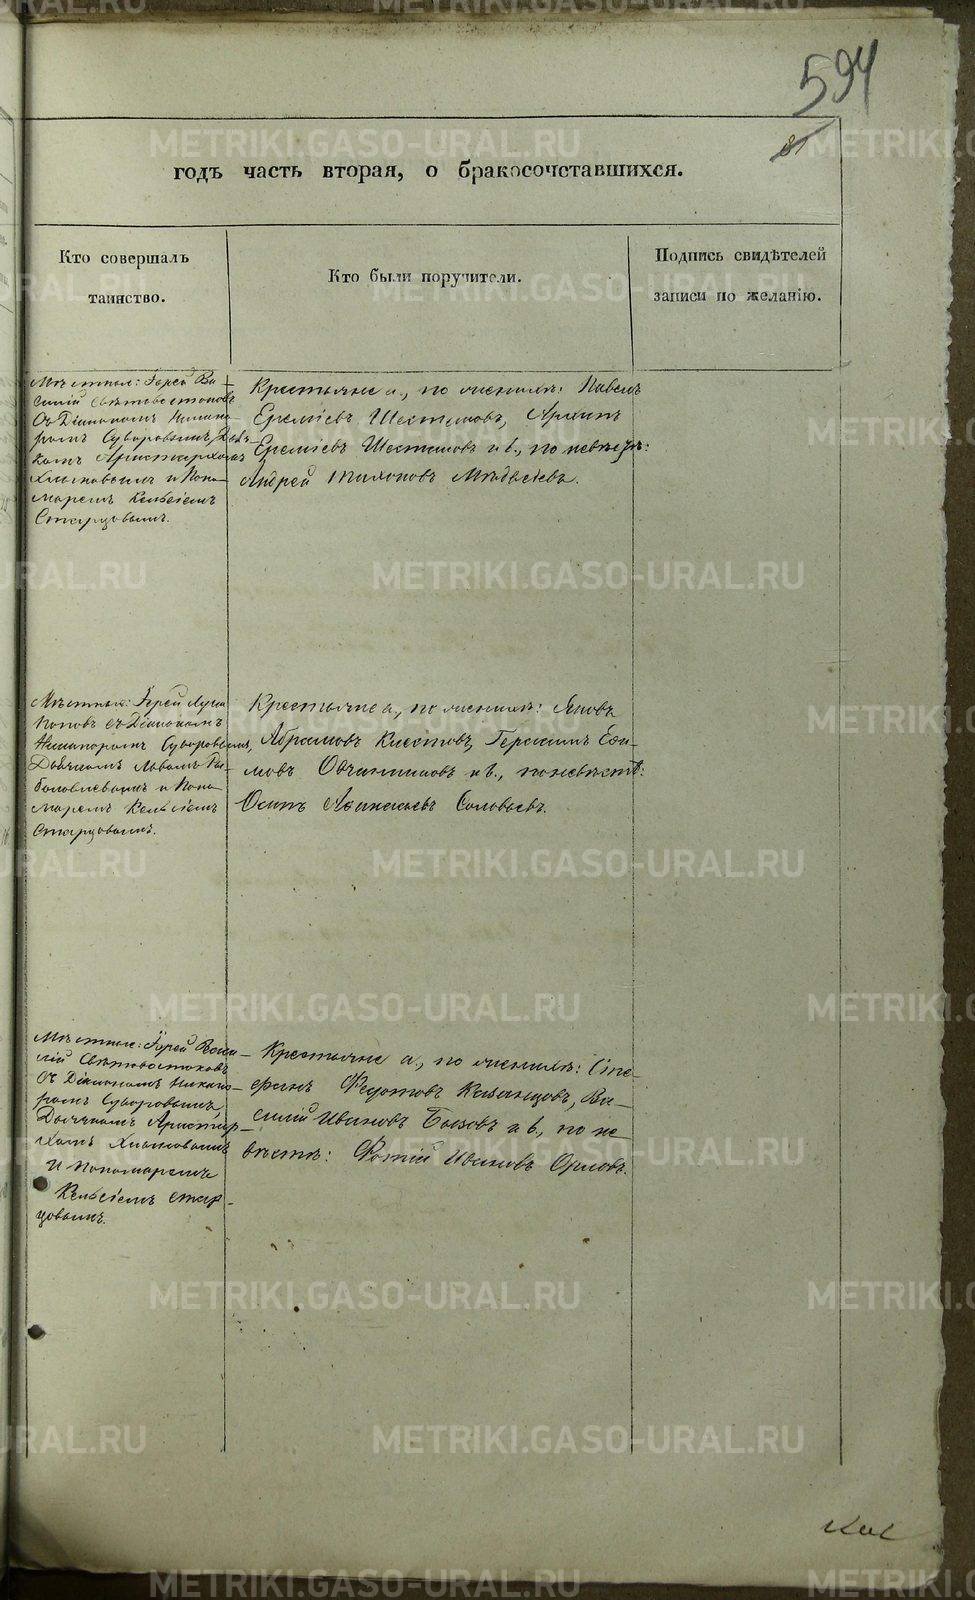 594
81
годъ часть вторая, о бракосочетавшихся.
Кто совершалъ
таинство.
Кто были поручители.
Подпись свидѣтелей
записи по желанію.
Мѣстные: Іерей Ва-
силій Свѣтовостоковъ
Съ Діакономъ Никано-
ромъ Суворовымъ, Дьяч-
комъ Аристархомъ
Хлыновымъ и Поно-
маремъ Кельсіемъ
Старцовымъ.
Крестьяне а., по женихѣ: Павелъ
Еремѣевъ Шестаковъ, Архипъ
Еремѣевъ Шестаковъ и в., по невѣстѣ:
Андрей Тихоновъ Медвѣдевъ.
Мѣстные: Іерей
Поповъ съ Діакономъ
Никаноромъ Суворовымъ,
Дьячкомъ Львомъ
и Поно-
маремъ Кельсіемъ
Старцовымъ.
Крестьяне а., по женихѣ: Яковъ
Абрамовъ Клестовъ, Герасимъ Ефи-
мовъ Овчинниковъ и в., по невѣстѣ:
Осипъ Соловьевъ.
Мѣстные: Іерей Васи-
лій Свѣтовостоковъ
Съ Діакономъ Никано-
ромъ Суворовымъ,
Дьячкомъ Аристар-
хомъ Хлыновымъ
и Пономаремъ
Кельсіемъ Стар-
цовымъ.
Крестьяне а., по женихѣ: Сте-
фанъ Федотовъ Казанцовъ, Ва-
силій Ивановъ Бызовъ и в., по не
вѣстѣ: Фотій Ивановъ Орловъ.
METRIKI.GASO-URAL.RU